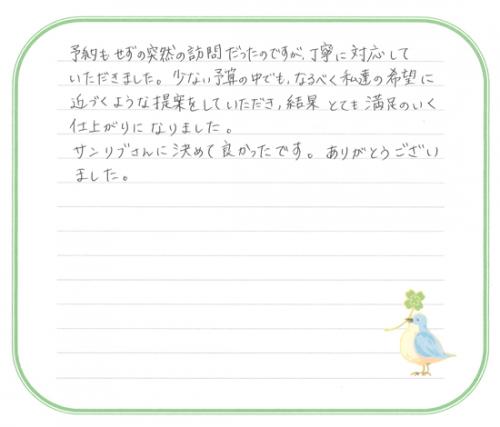 予約もせずの突然の訪問だったのですが、丁寧に対応して
いただきました。少ない予算の中でも、なるべく私達の希望に
近づくような提案をしていただき、結果とても満足のいく
仕上がりになりました。
サンリブさんに決めて良かったです。ありがとうござい
ました。